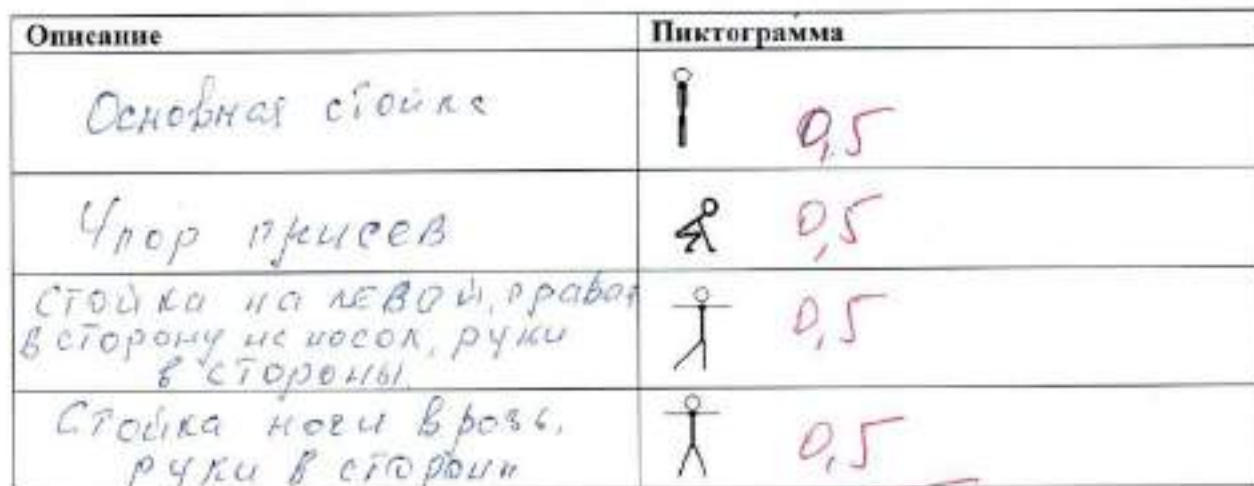 Описание
Пиктограмма
Основная стойка
0,5
Упор присев
0,5
Стойка на левой, правая
в сторону на носок, руки
в стороны.
0,5
Стойка ноги врозь,
руки в стороны
0,5